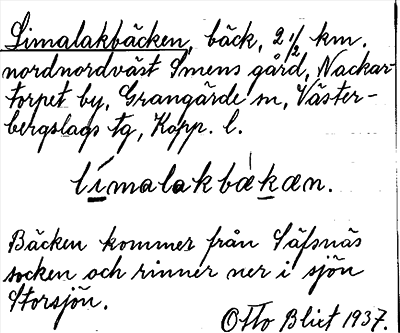 Limalakbäcken, bäck, 2 1/2 km.
nordnordväst Smens gård, Nackar-
torpet by, Grangärde sn, Väster-
bergslags tg, Kopp. l.
límalakbækæn.
Bäcken kommer från Säfsnäs
socken och rinner ner i sjön
Storsjön.
Otto Blixt 1937.